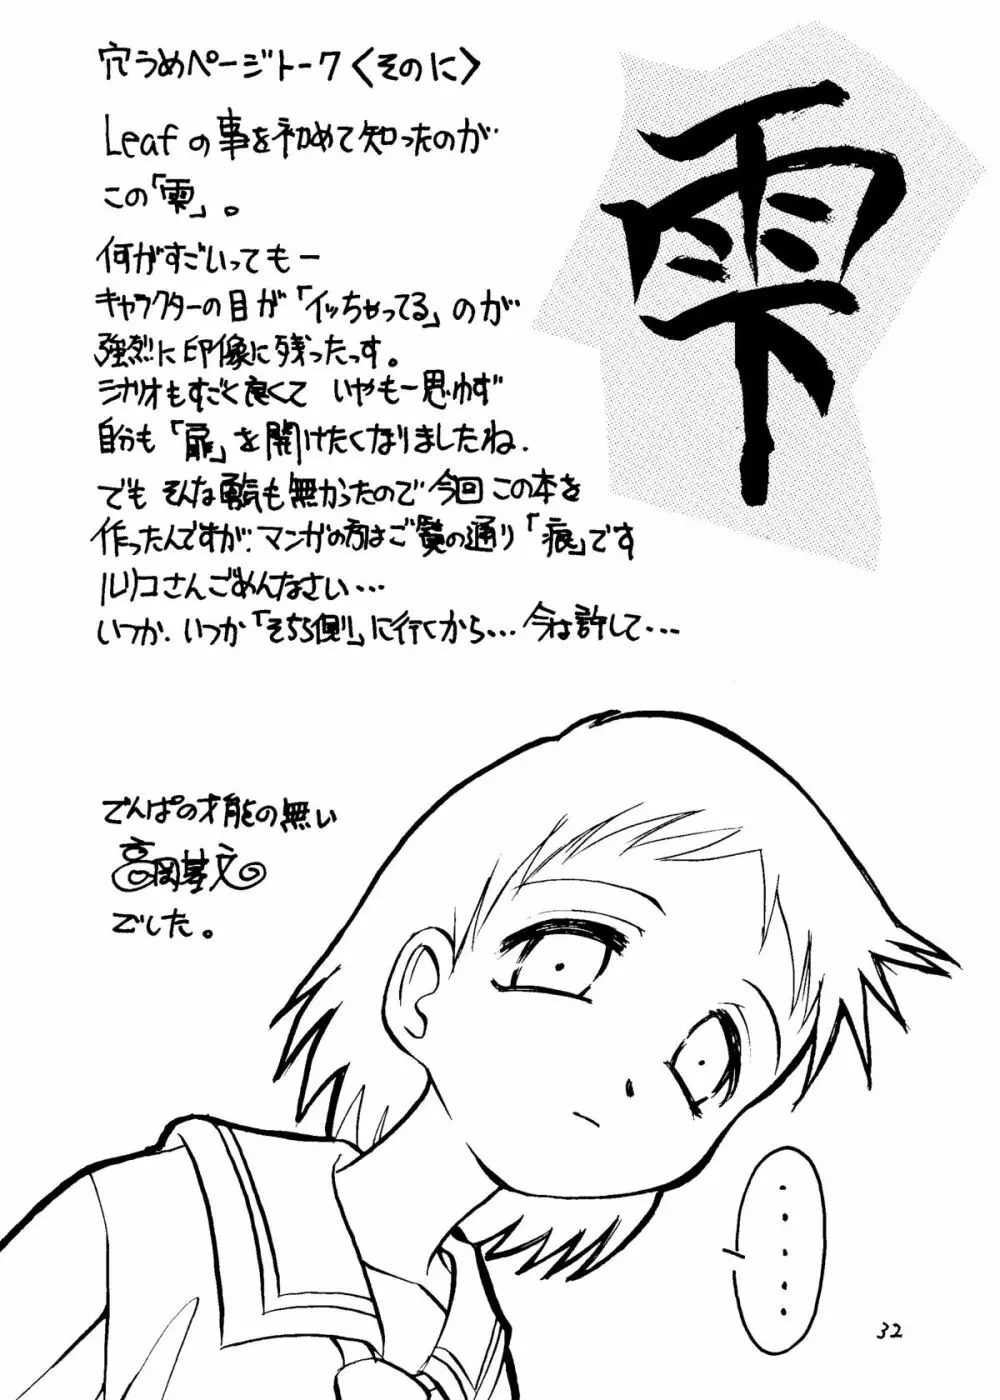 穴うめページトーク〈そのに〉
雫
Leafの事を初めて知ったのが
この「雫」。
何がすごいってもー
キャラクターの目が「イッちゃってる」のが
強烈に印像に残ったっす。
シナリオもすごく良くて いやもー思ゆず
自分も「扉」を開けたくなりましたね.
でも そんな勇気も無かったので今回 この本を
作ったんですが.マンガの方はご覧の通り「痕」です
ルリコさんごめんなさい...
いつか.いつか「そちら側」に行くから...今は許して...
でんぱの才能の無い
高岡基文
でした。
・・・・・・
32